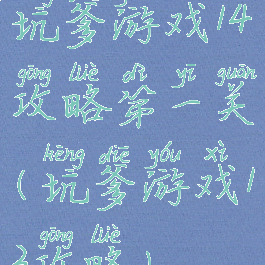 坑爹游戏14
gōng lüè dì yī guān
攻略第一关
kēng diē yóu xì
(坑爹游戏1
gōng lüè
攻略)